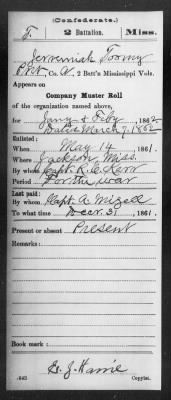 (Confederate.)
T 2 Battalion. Miss.
Jeremiah Toomy
Pvt, Co. A, 2 Batt'n Mississippi Vols.
Appears on
Company Muster Roll
of the organization named above,
for Jany & Feby, 1862
Dated March 7, 1862
Enlisted:
When May 14, 1861.
Where Jackson, Miss.
By whom Capt. R. C. Kerr
Period For the war
Last paid:
By whom Capt. A. Mizell
To what time Decr. 31, 1861.
Present or absent Present
Remarks:
Book mark:
E. J. Harrie
(642) Copyist.